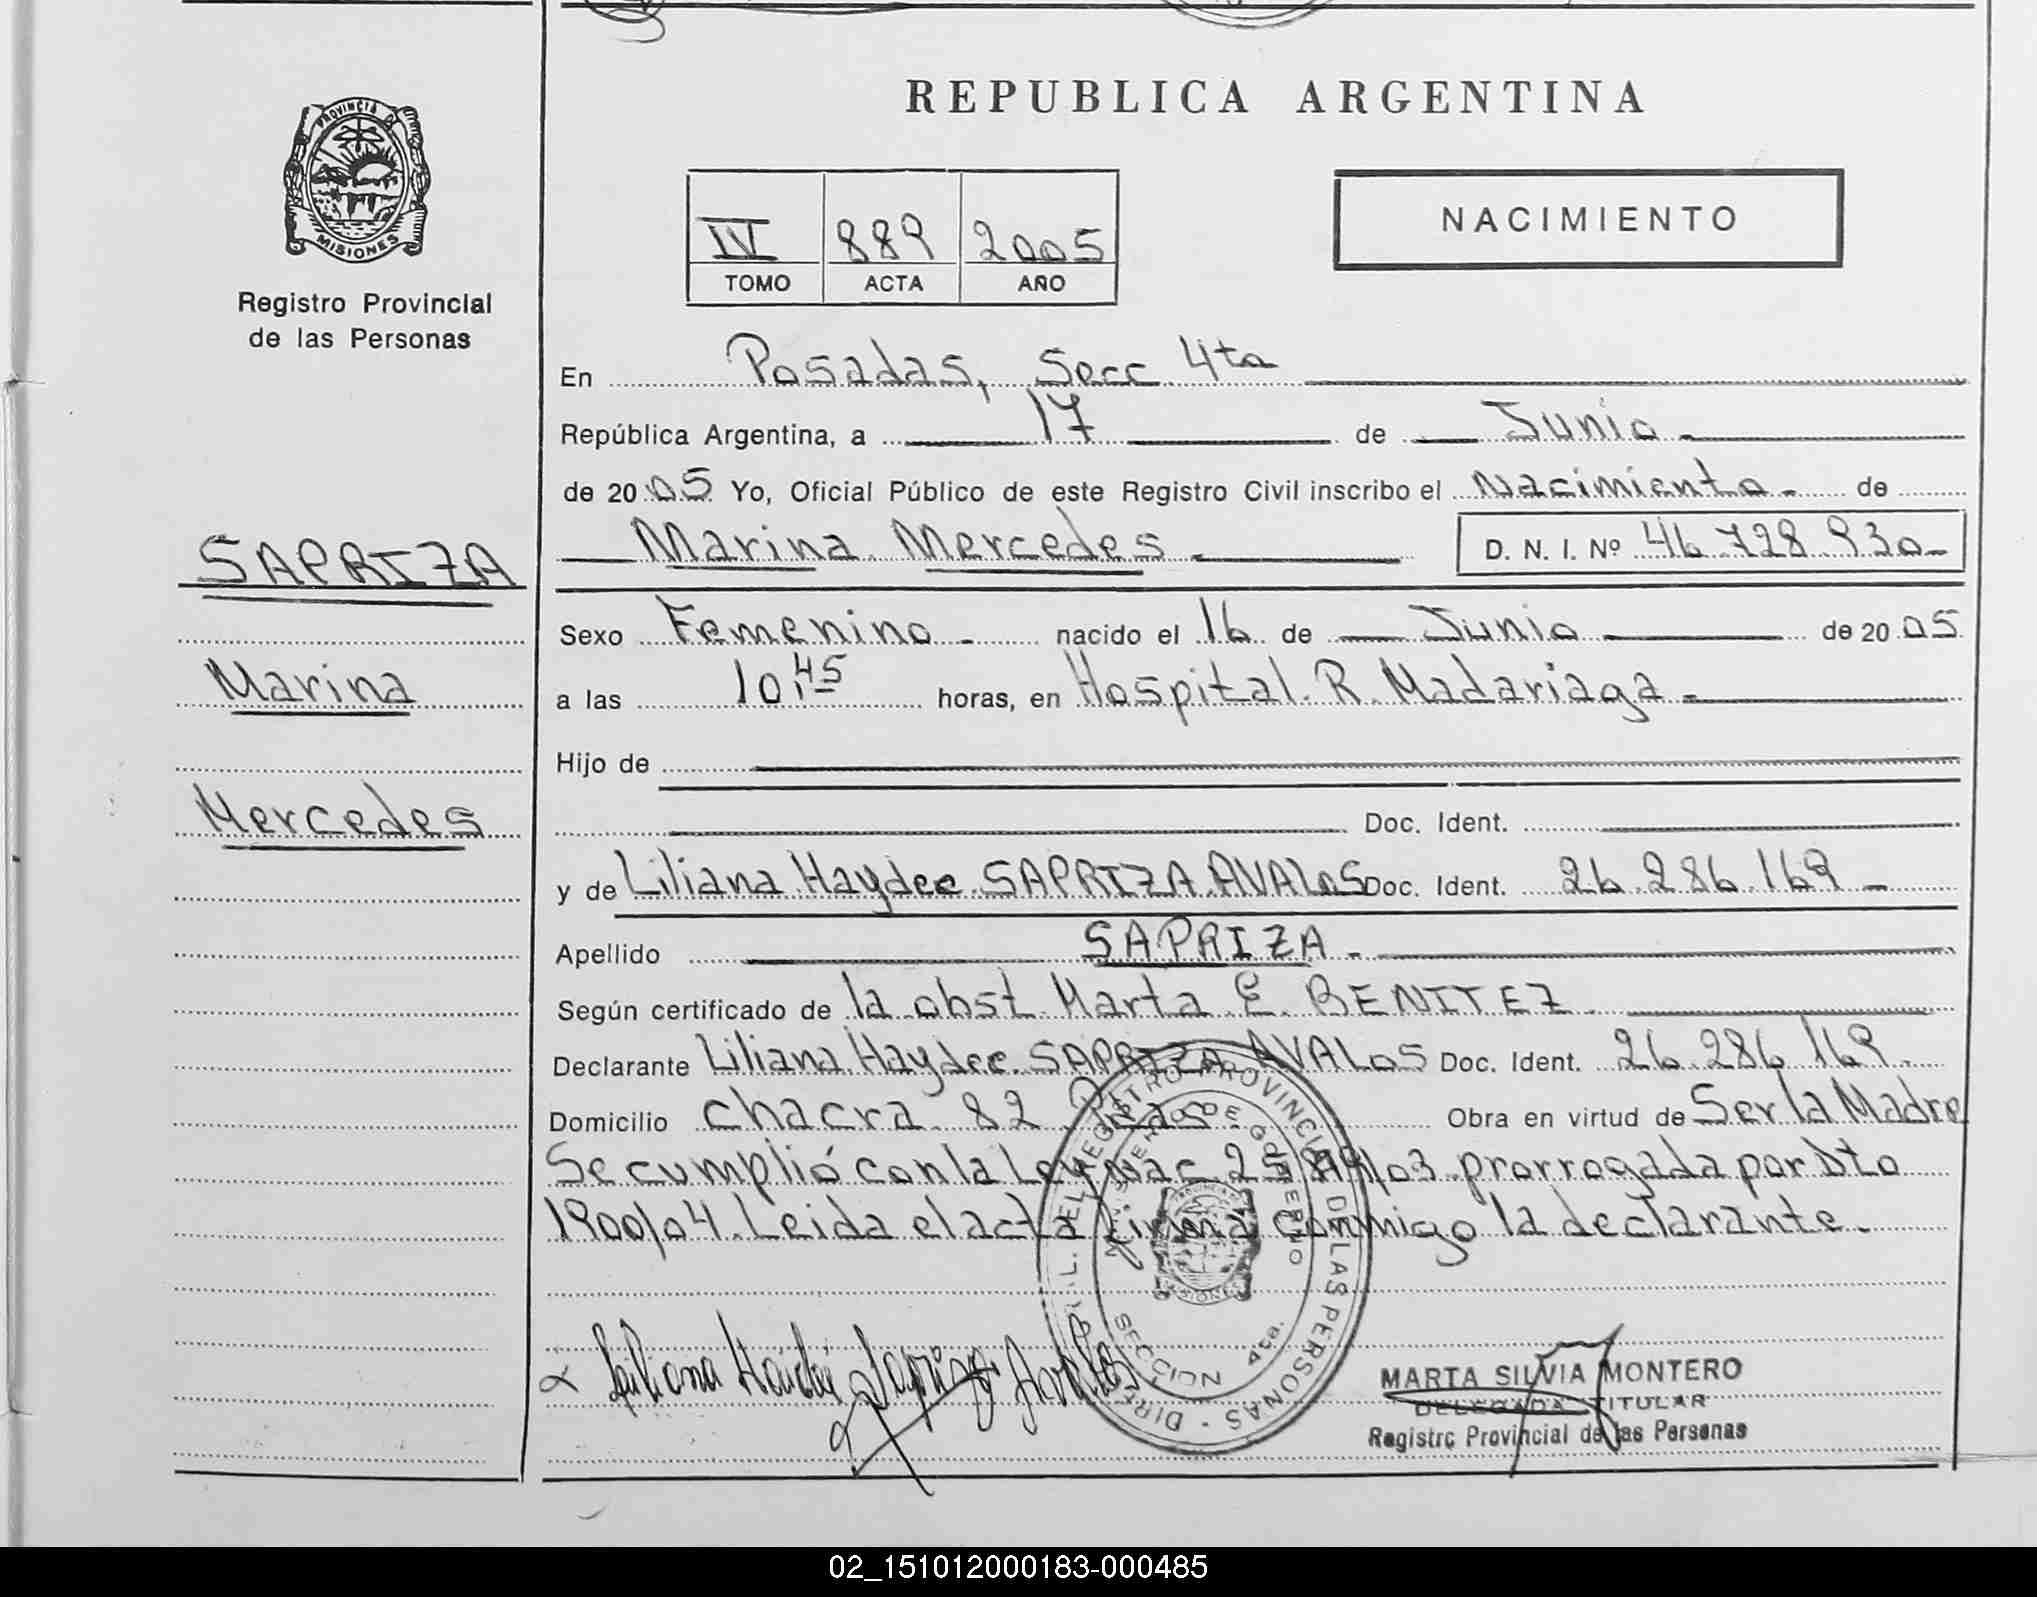 REPUBLICA ARGENTINA
PROVINCIA D
MISIONES
Registro Provincial
de las Personas
IV 889 2005
TOMO ACTA AÑO
NACIMIENTO
En Posadas, Secc 4ta
República Argentina, a 17 de Junio
de 2005 Yo, Oficial Público de este Registro Civil inscribo el Nacimiento de
Marina Mercedes D. N. I. Nº 46.728.930
SAPRIZA
Marina
Mercedes
Sexo Femenino nacido el 16 de Junio de 2005
a las 10,45 horas, en Hospital R. Madariaga
Hijo de
Doc. Ident.
y de Liliana Haydee SAPRIZA AVALOS Doc. Ident. 26.286.169
Apellido SAPRIZA
Según certificado de la obst Marta E. BENITEZ
Declarante Liliana Haydee SAPRIZA AVALOS Doc. Ident. 26.286.169
Domicilio chacra 82 Pdas Obra en virtud de Ser la Madre
Se cumplió con la Ley Nac 25819/03 prorrogada por Dto
1900/04. Leida el acta firma conmigo la declarante.
Liliana Haidé Sapriza Avalos
DIR. GRAL. DEL REGISTRO PROVINCIAL DE LAS PERSONAS
DE GOBIERNO
MISIONES
SECCION 4ta.
MARTA SILVIA MONTERO
DELEGADA TITULAR
Registro Provincial de las Personas
02_151012000183-000485